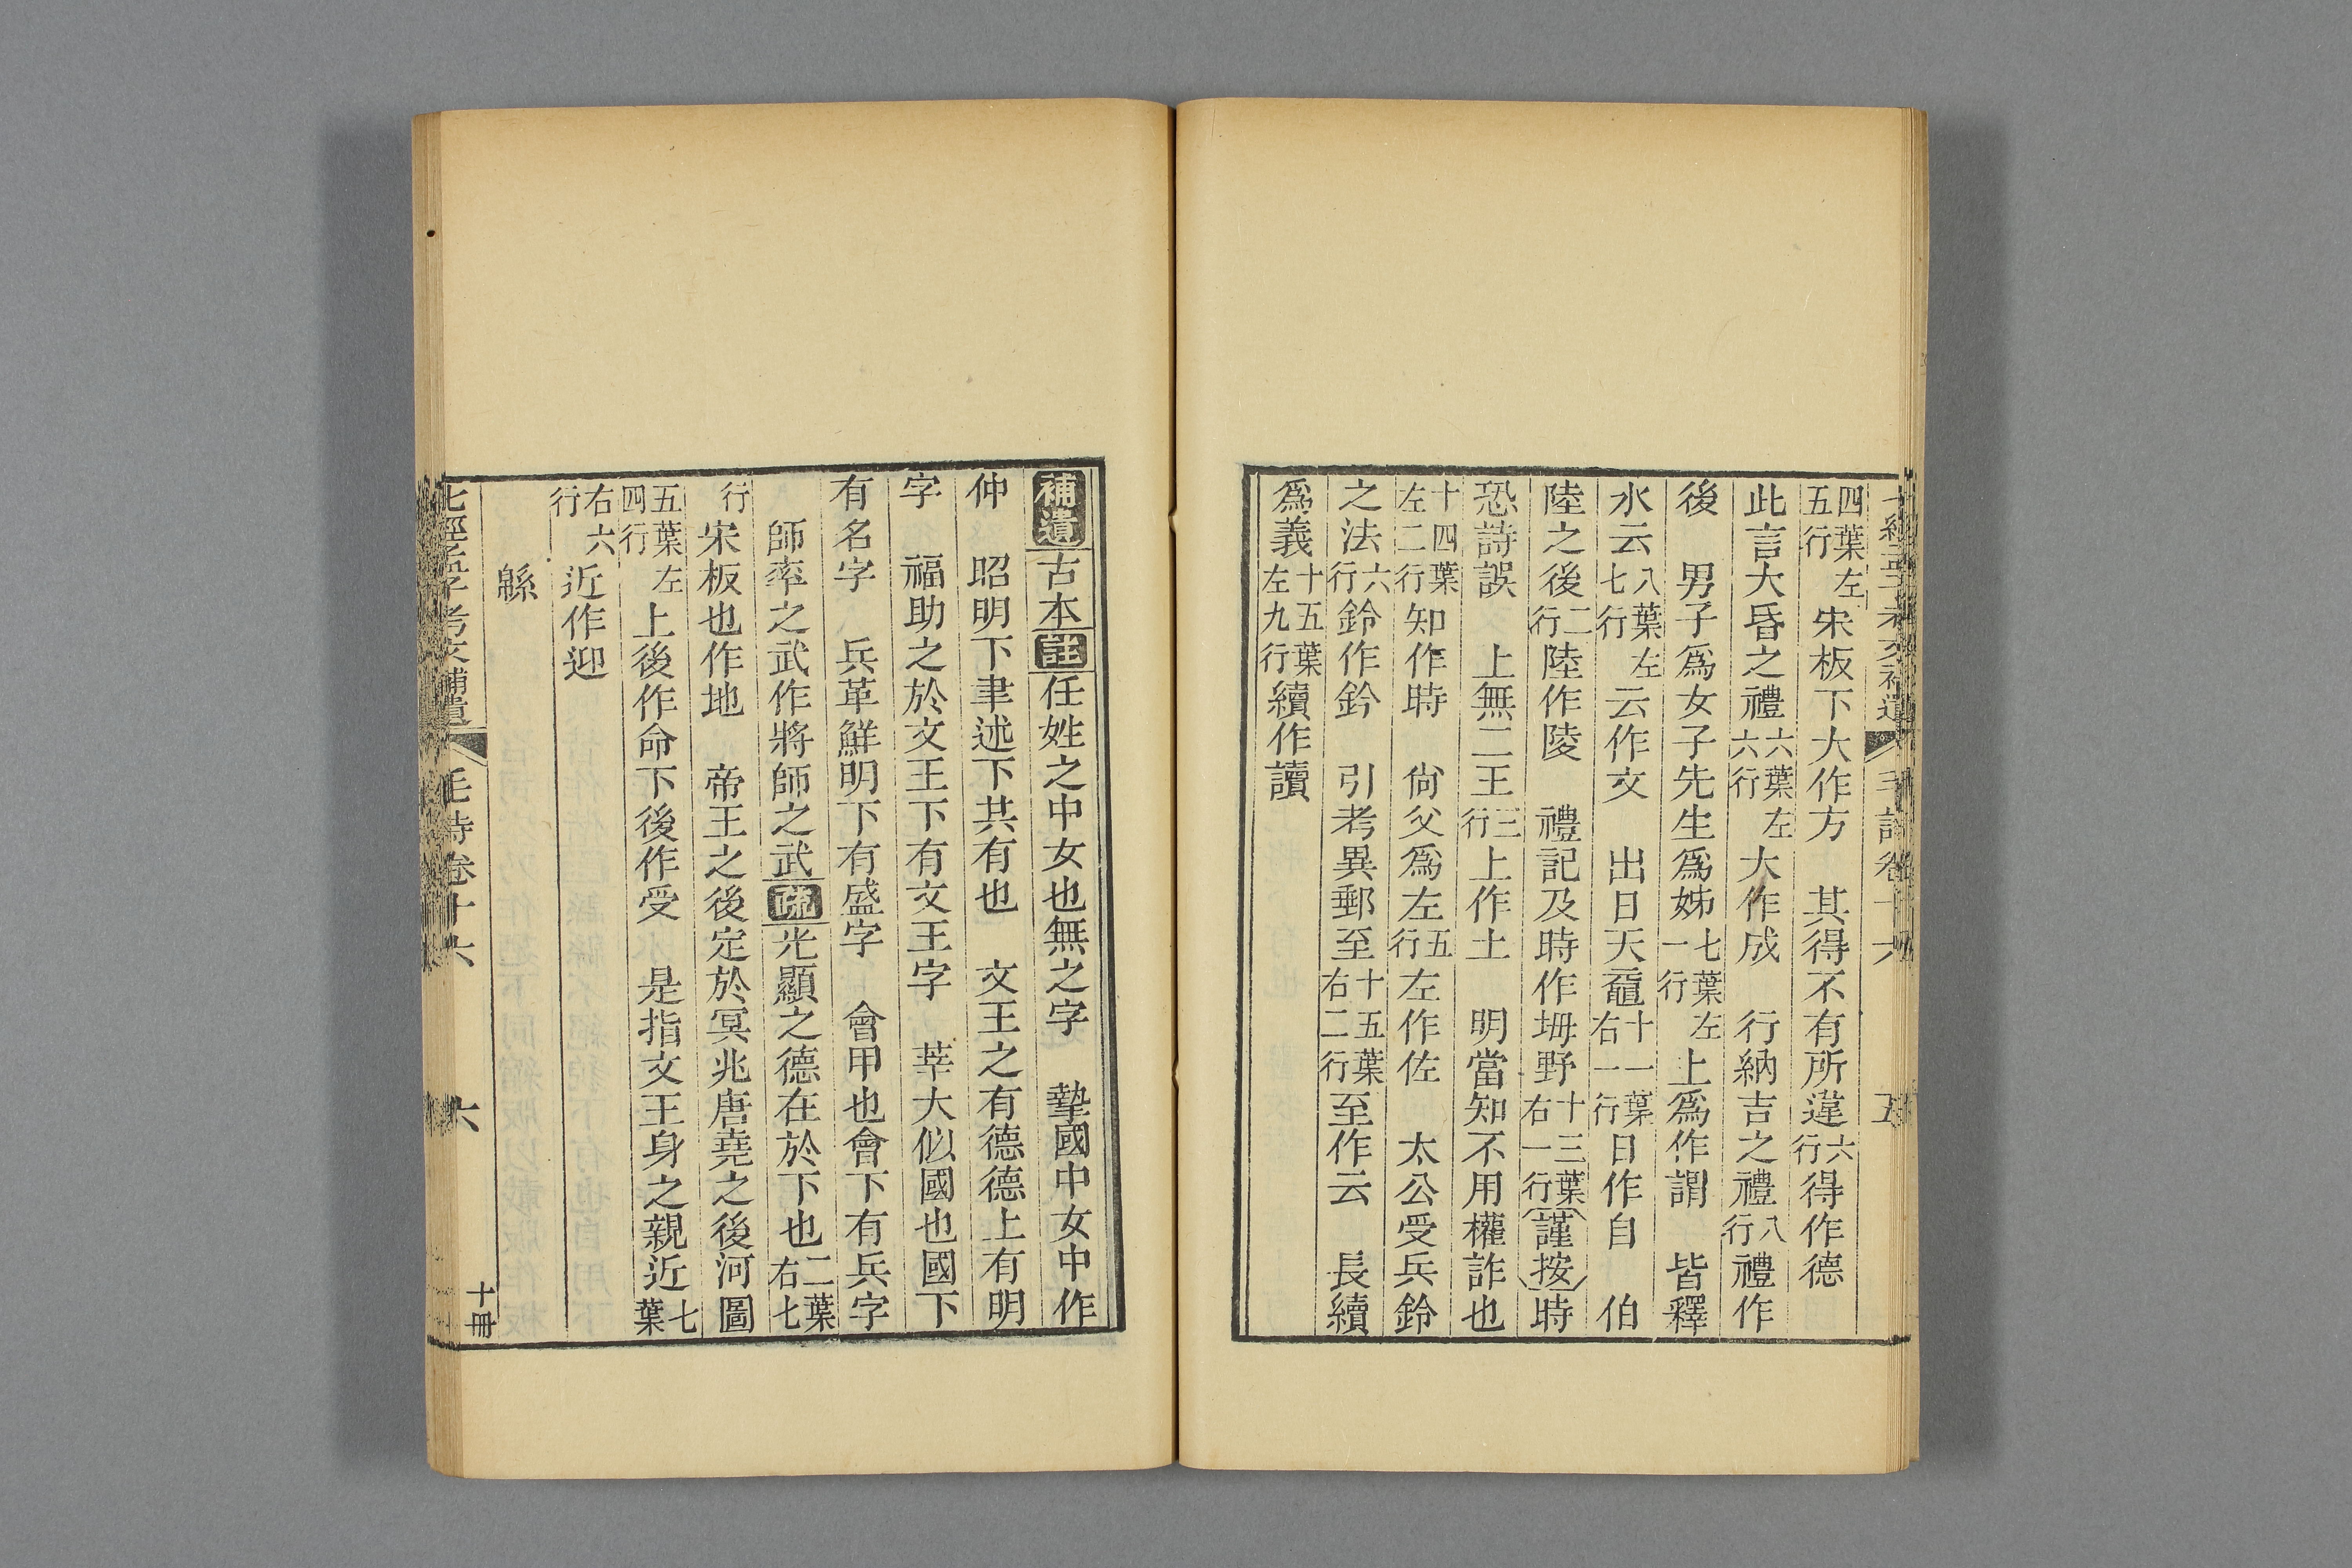 四葉左五行宋板下大作方　其得不有所違六行得作德
此言大昏之禮六葉左六行大作成　行納吉之禮八行禮作
後　男子爲女子先生爲姊七葉左一行上爲作謂　皆釋
水云八葉左七行云作文　出日天黿十一葉右一行日作自　伯
陸之後二行陸作陵　禮記及時作坶野十三葉右一行謹按時
恐詩誤　上無二王三行上作土　明當知不用權詐也
十四葉左二行知作時　尙父爲左五行左作佐　太公受兵鈐
之法六行鈴作鈐　引考異郵至十五葉右二行至作云　長續
爲義十五葉左九行續作讀
補遺古本註任姓之中女也無之字　摯國中女中作
仲　昭明下聿述下共有也　文王之有德德上有明
字　福助之於文王下有文王字　莘大姒國也國下
有名字　兵革鮮明下有盛字　會甲也會下有兵字
師率之武作將師之武疏光顯之德在於下也二葉右七
行宋板也作地　帝王之後定於冥兆唐堯之後河圖
五葉左四行上後作命下後作受　是指文王身之親近七葉
右六行近作迎
緜
七經孟子考文補遺　毛詩卷十六　六　十冊